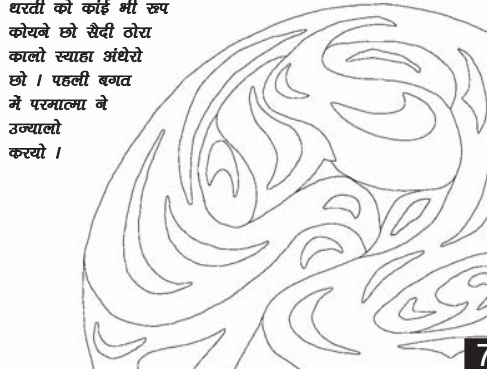 धरती को कांई भी रूप
कोयने छो सैदी ठोरा
कालो स्याहा अंधेरो
छो । पहली बगत
में परमात्मा ने
उज्यालो
करयो ।
7